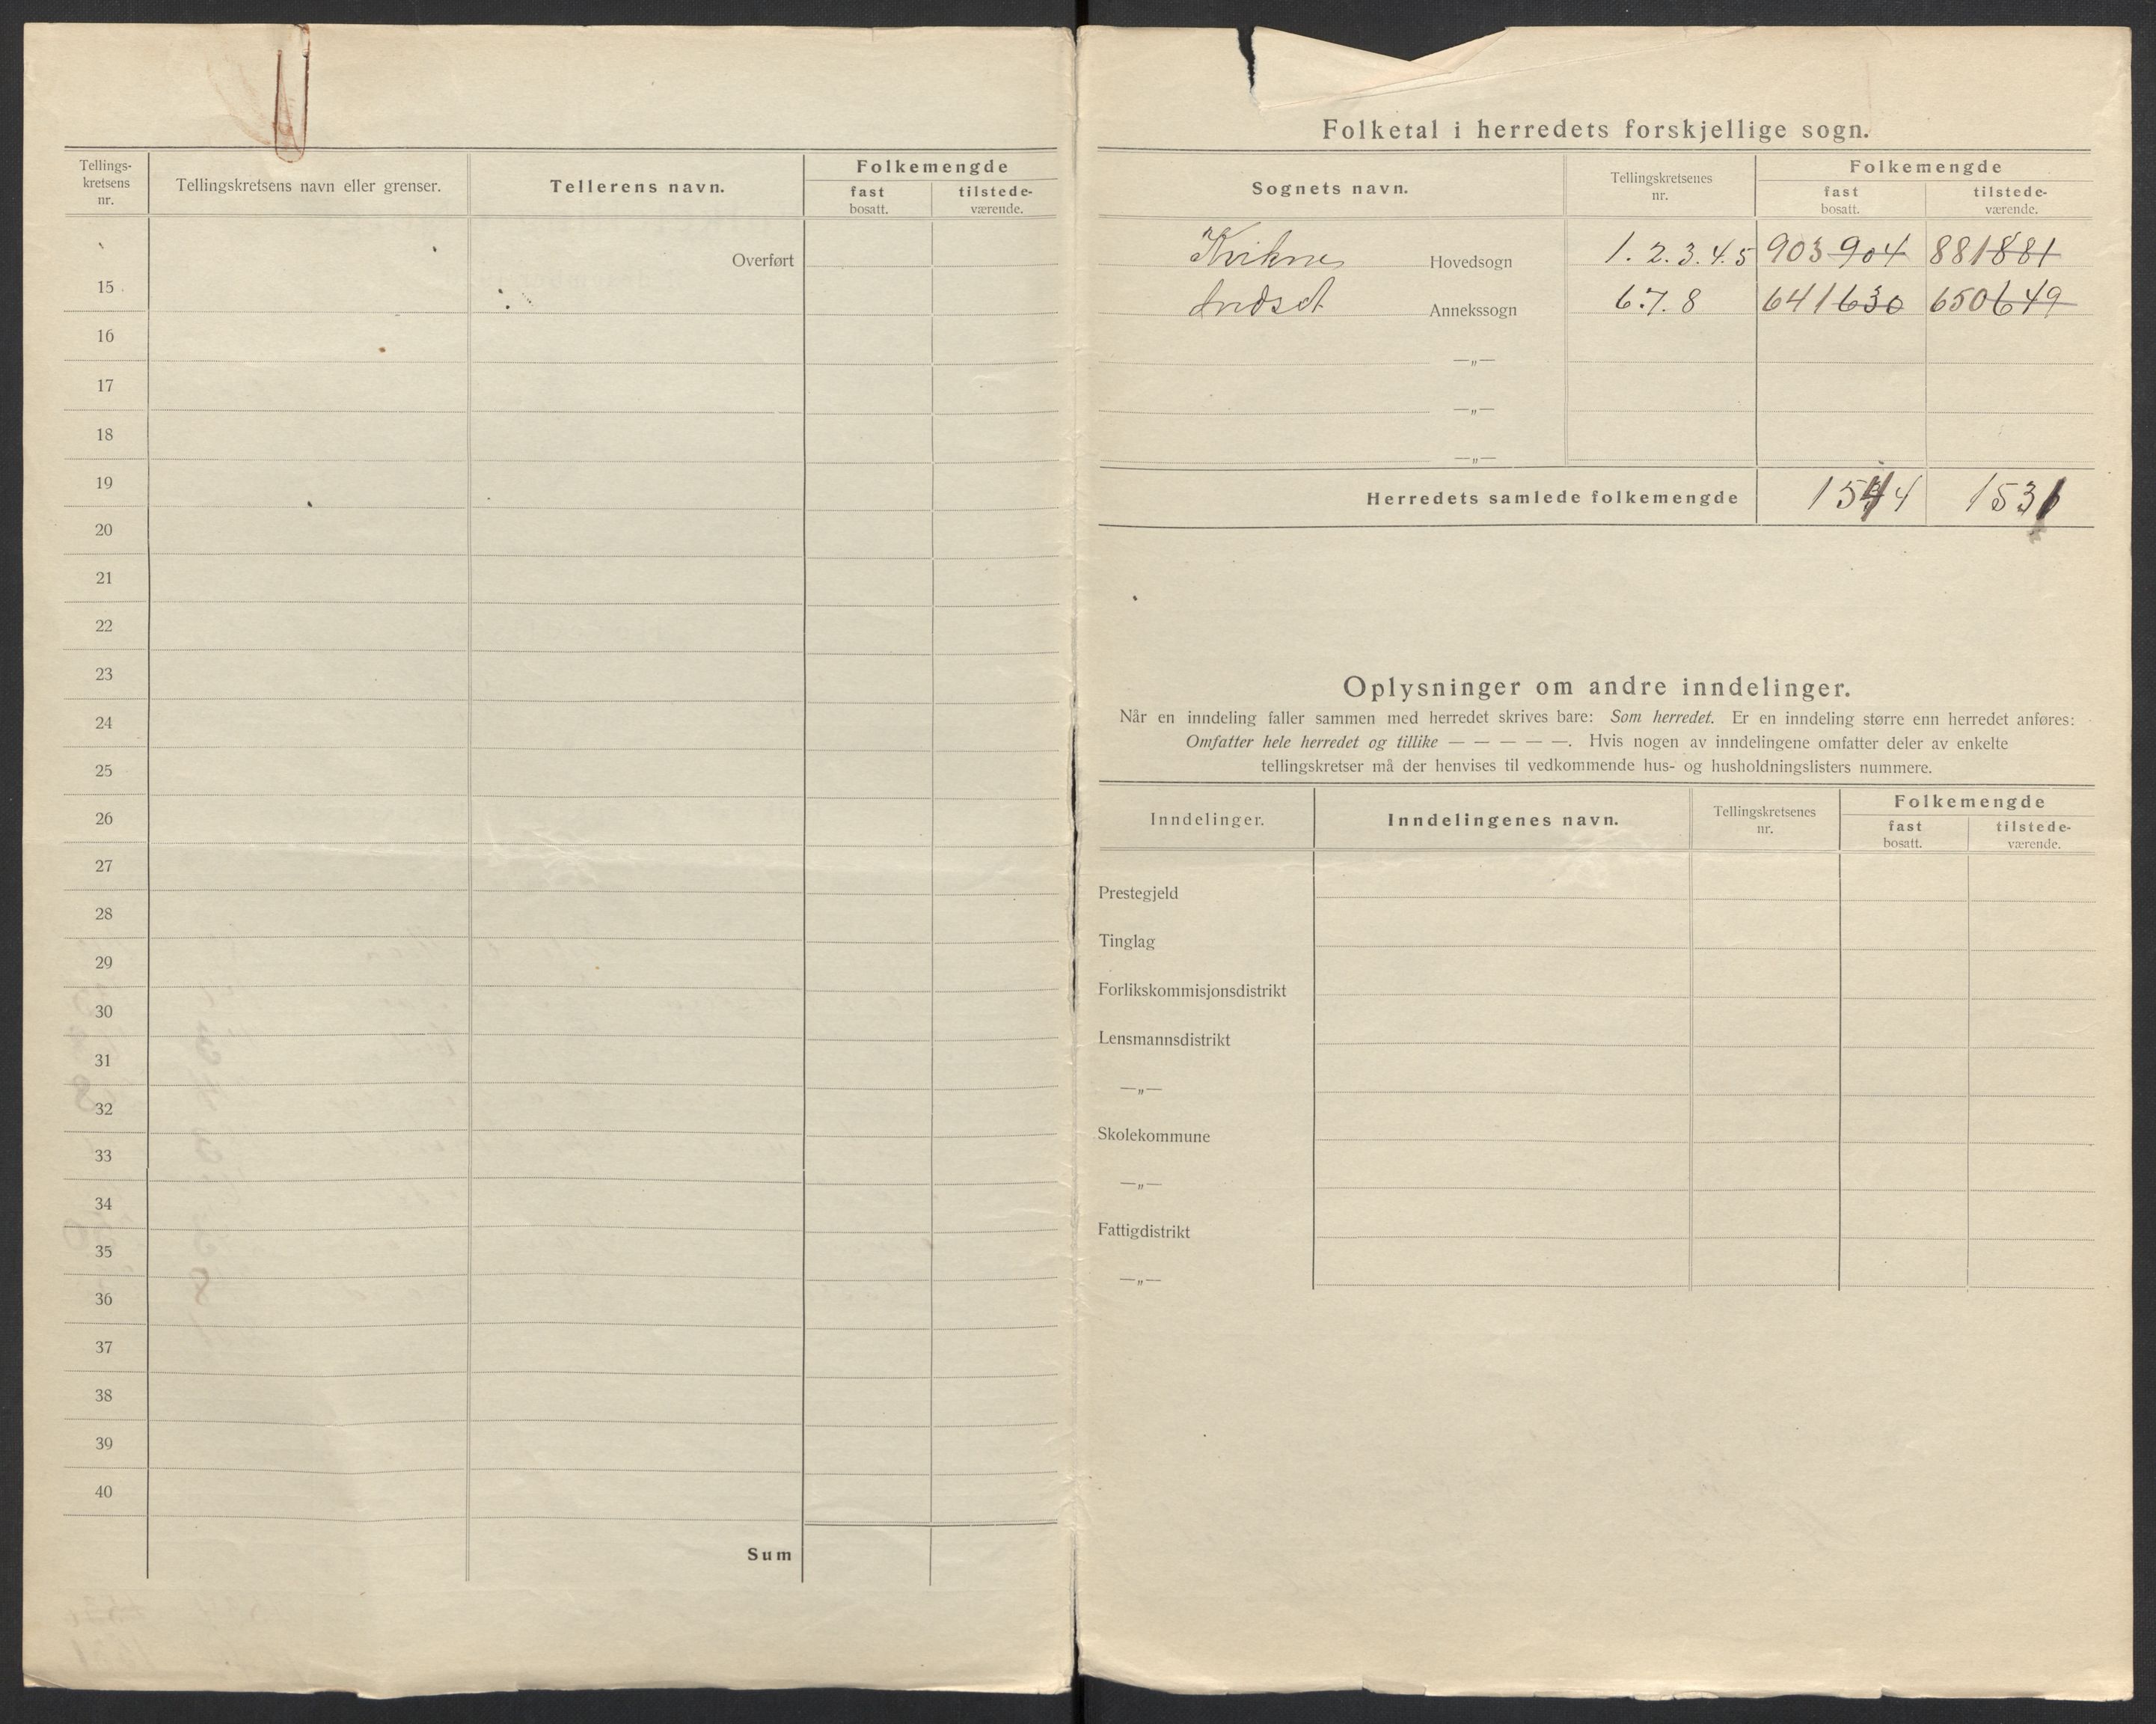 Tellings-
kretsens
nr.
Tellingskretsens navn eller grenser.
Tellerens navn.
Folkemengde
fast
bosatt.
tilstede-
værende.
Overført
15
16
17
18
19
20
21
22
23
24
25
26
27
28
29
30
31
32
33
34
35
36
37
38
39
40
Sum
Folketal i herredets forskjellige sogn.
Sognets navn.
Tellingskretsenes
nr.
Folkemengde
fast
bosatt.
tilstede-
værende.
Kvikne Hovedsogn 1. 2. 3. 4. 5 903 904 881 881
Indset Annekssogn 6. 7. 8 641 630 650 649
—„—
—„—
—„—
Herredets samlede folkemengde 1544 1531
Oplysninger om andre inndelinger.
Når en inndeling faller sammen med herredet skrives bare: Som herredet. Er en inndeling større enn herredet anføres:
Omfatter hele herredet og tillike — — — — —. Hvis nogen av inndelingene omfatter deler av enkelte
tellingskretser må der henvises til vedkommende hus- og husholdningslisters nummere.
Inndelinger.
Inndelingenes navn.
Tellingskretsenes
nr.
Folkemengde
fast
bosatt.
tilstede-
værende.
Prestegjeld
Tinglag
Forlikskommisjonsdistrikt
Lensmannsdistrikt
—„—
Skolekommune
—„—
Fattigdistrikt
—„—